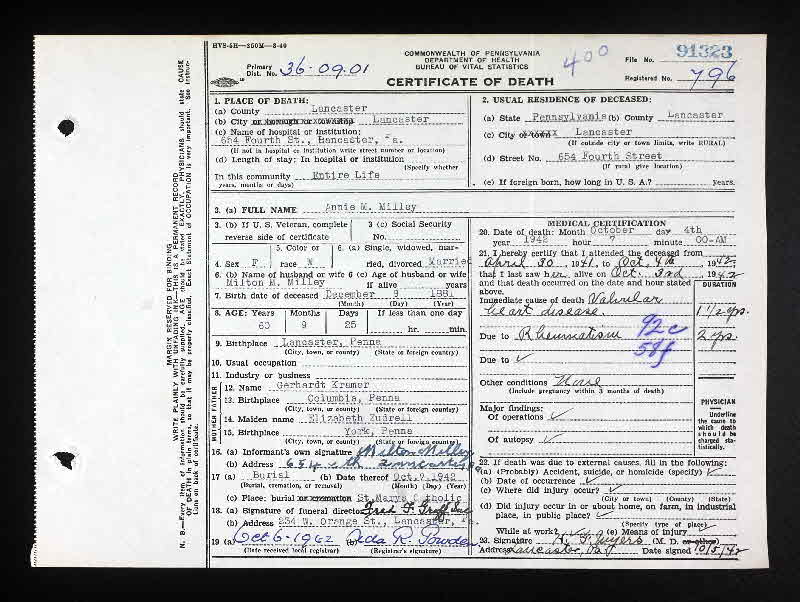 HVS-5H—250M—8-40
COMMONWEALTH OF PENNSYLVANIA
DEPARTMENT OF HEALTH
BUREAU OF VITAL STATISTICS
CERTIFICATE OF DEATH
Primary
Dist. No. 36-09.01
400
File No. 91323
Registered No. 796
MARGIN RESERVED FOR BINDING
WRITE PLAINLY WITH UNFADING INK—THIS IS A PERMANENT RECORD
N. B.—Every item of information should be carefully supplied. AGE should be stated EXACTLY. PHYSICIANS should state CAUSE
OF DEATH in plain terms, so that it may be properly classified. Exact Statement of OCCUPATION is very important. See instruc-
tions on back of certificate.
1. PLACE OF DEATH:
(a) County Lancaster
(b) City or borough or township Lancaster
(c) Name of hospital or institution:
654 Fourth St., Hancaster, Pa.
(If not in hospital or institution write street number or location)
(d) Length of stay: In hospital or institution
(Specify whether
In this community Entire Life
years, months or days)
2. USUAL RESIDENCE OF DECEASED:
(a) State Pennsylvania (b) County Lancaster
(c) City or town Lancaster
(If outside city or town limits, write RURAL)
(d) Street No. 654 Fourth Street
(If rural give location)
(e) If foreign born, how long in U. S. A.? years.
3. (a) FULL NAME Annie M. Milley
3. (b) If U. S. Veteran, complete
reverse side of certificate
3 (c) Social Security
No.
4. Sex F
5. Color or
race W
6. (a) Single, widowed, mar-
ried, divorced Married
6. (b) Name of husband or wife
Milton M. Milley
6 (c) Age of husband or wife
if alive years
7. Birth date of deceased December 9 1881
(Month) (Day) (Year)
8. AGE: Years Months Days If less than one day
60 9 25 hr. min.
9. Birthplace Lancaster, Penna
(City, town, or county) (State or foreign country)
10. Usual occupation
11. Industry or business
FATHER
12. Name Gerhardt Kramer
13. Birthplace Columbia, Penna
(City, town, or county) (State or foreign country)
MOTHER
14. Maiden name Elizabeth Zudrell
15. Birthplace York, Penna
(City, town, or county) (State or foreign country)
16. (a) Informant's own signature Milton Milley
(b) Address 654 4th Lancaster Pa
17 (a) Burial (b) Date thereof Oct. 9, 1942
(Burial, cremation, or removal) (Month) (Day) (Year)
(c) Place: burial or cremation St. Marys Catholic
18. (a) Signature of funeral director Fred F. Groff Inc
(b) Address 234 W. Orange St., Lancaster, Pa.
19 (a) Oct 6-1942 (b) Ada R. Powden
(Date received local registrar) (Registrar's signature)
MEDICAL CERTIFICATION
20. Date of death: Month October day 4th
year 1942 hour 7 minute 00-AM
21. I hereby certify that I attended the deceased from
April 30, 1941, to Oct. 4th, 1942;
that I last saw her alive on Oct. 3rd, 1942
and that death occurred on the date and hour stated
above.
DURATION
Immediate cause of death Valvular
heart disease. 1 1/2 yrs.
Due to Rheumatism 2 yrs
92c
58f
Due to
Other conditions None
(Include pregnancy within 3 months of death)
Major findings:
Of operations
Of autopsy
PHYSICIAN
Underline
the cause to
which death
should be
charged sta-
tistically.
22. If death was due to external causes, fill in the following:
(a) (Probably) Accident, suicide, or homicide (specify)
(b) Date of occurrence
(c) Where did injury occur?
(City or town) (County) (State)
(d) Did injury occur in or about home, on farm, in industrial
place, in public place?
(Specify type of place)
While at work? (e) Means of injury
23. Signature (M. D. or other)
Address Lancaster, Pa. Date signed 10/5/42